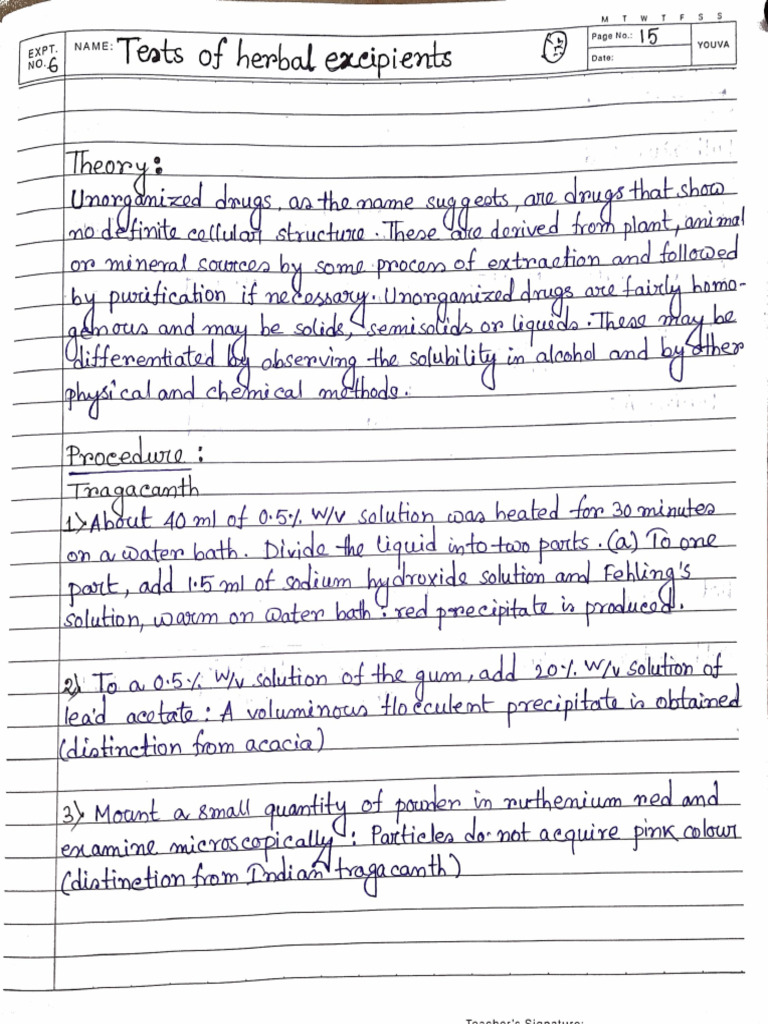 M T W T F S S
EXPT. NO. 6 NAME: Tests of herbal excipients Page No.: 15 YOUVA
Date:
Theory:
Unorganized drugs, as the name suggests, are drugs that show
no definite cellular structure. These are derived from plant, animal
or mineral sources by some process of extraction and followed
by purification if necessary. Unorganized drugs are fairly homo-
genous and may be solids, semisolids or liquids. These may be
differentiated by observing the solubility in alcohol and by other
physical and chemical methods.
Procedure:
Tragacanth
1) About 40 ml of 0.5% W/V solution was heated for 30 minutes
on a water bath. Divide the liquid into two parts. (a) To one
part, add 1.5 ml of sodium hydroxide solution and Fehling's
solution, warm on water bath : red precipitate is produced.
2) To a 0.5% W/V solution of the gum, add 20% W/V solution of
lead acetate : A voluminous flocculent precipitate is obtained
(distinction from acacia)
3) Mount a small quantity of powder in ruthenium red and
examine microscopically : Particles do not acquire pink colour
(distinction from Indian tragacanth)
Teacher's Signature: